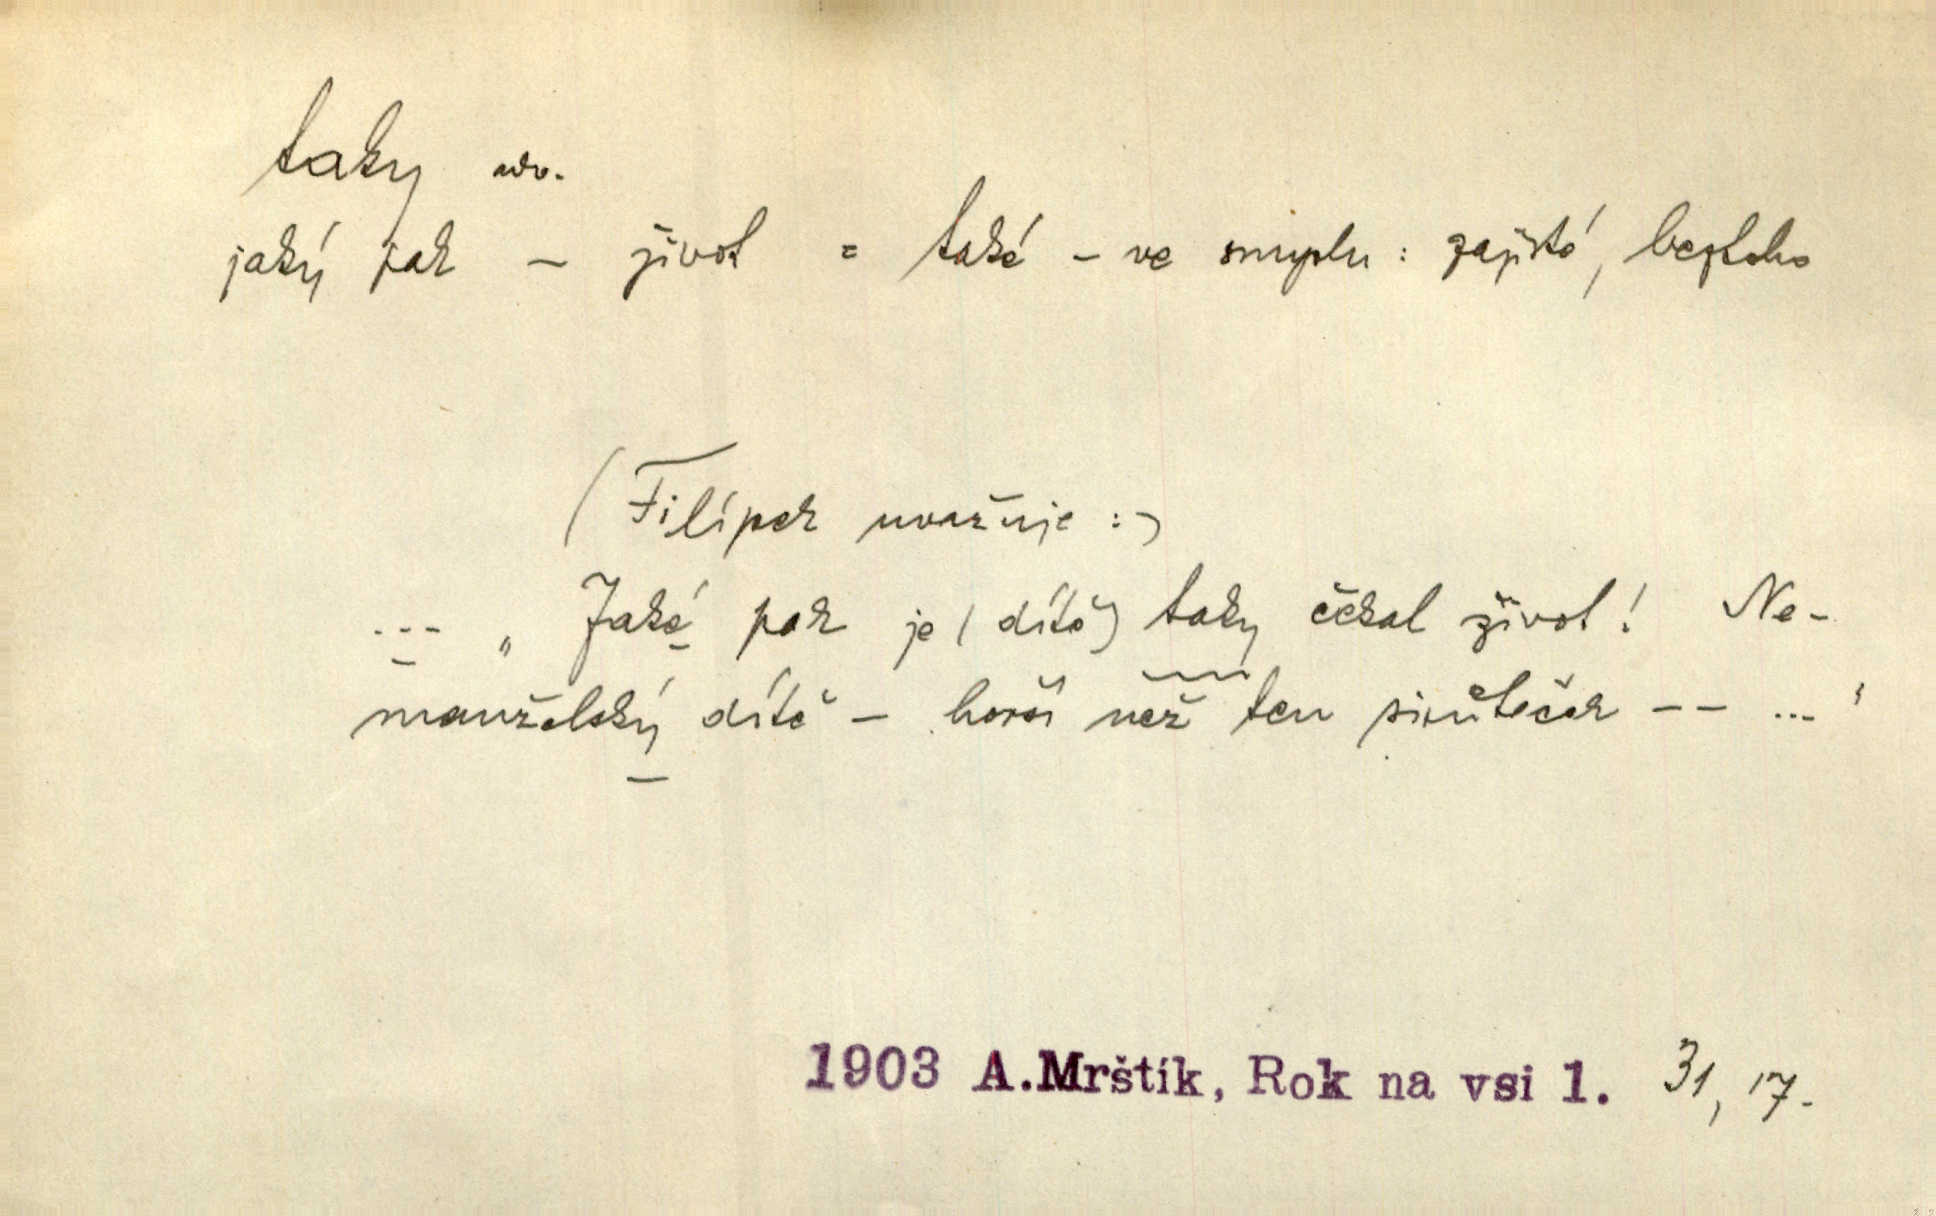 taky adv.
jaký pak – život = také – ve smyslu: zajisté, beztoho
(Filípek uvažuje:)
... „Jaké pak je (dítě) taky čekal život! Ne-
manželský dítě – horší než ten sirůteček – – ... "
1903 A.Mrštík, Rok na vsi 1. 31, 17.